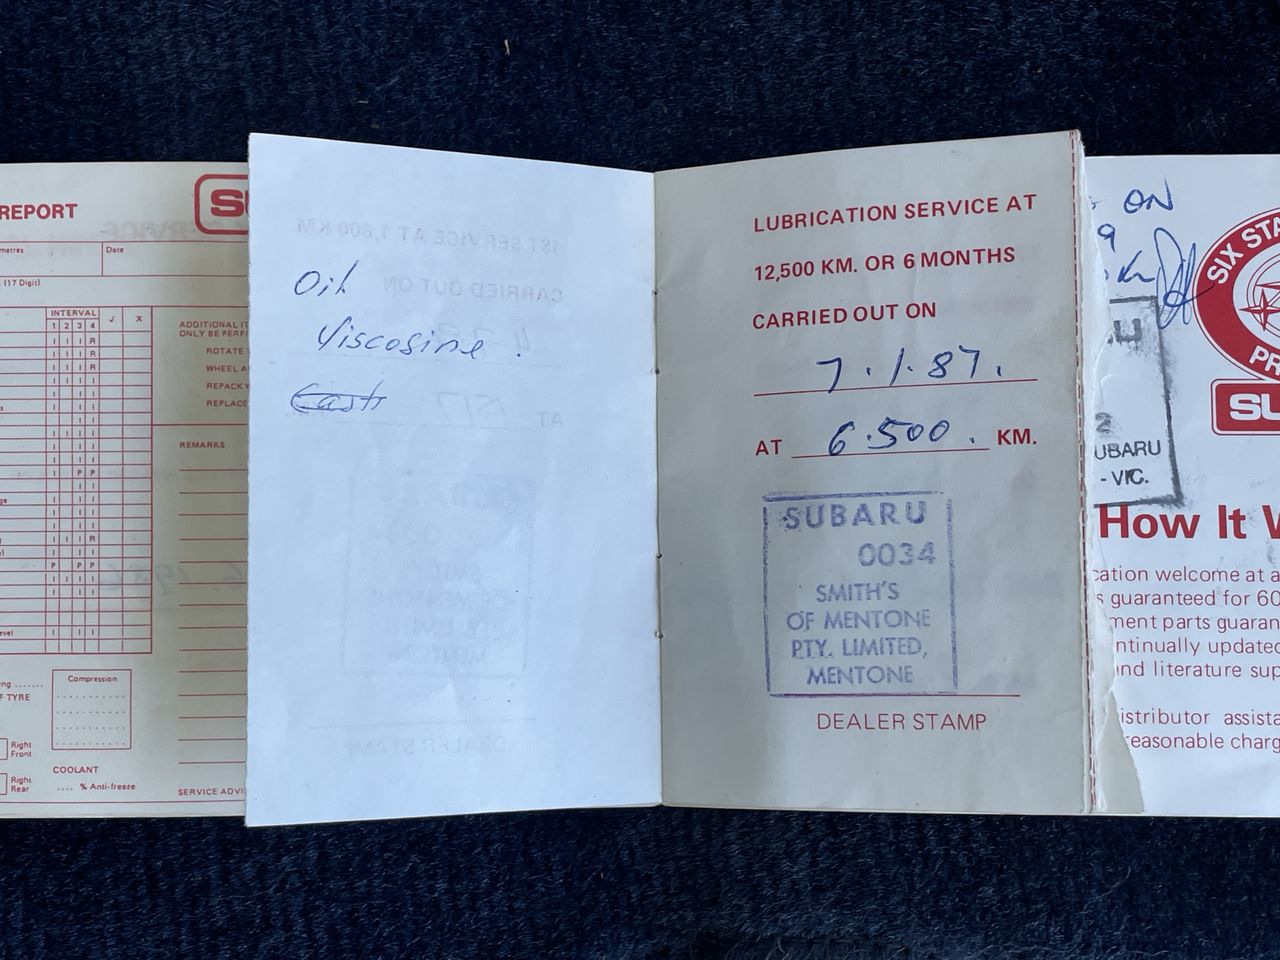 REPORT
SU
Date
(17 Digit)
INTERVAL
1 2 3 4
X
ADDITIONAL
ONLY BE
ROTATE
WHEEL
REPACK
REPLACE
REMARKS
Compression
OF TYRE
Right
Front
Right
Rear
COOLANT
.... % Anti-freeze
SERVICE
1ST SERVICE AT 1,600 KM.
CARRIED OUT ON
AT
DEALER STAMP
Oil
Viscosine.
Cash
LUBRICATION SERVICE AT
12,500 KM. OR 6 MONTHS
CARRIED OUT ON
7.1.87.
AT 6.500. KM.
SUBARU
0034
SMITH'S
OF MENTONE
PTY. LIMITED,
MENTONE
DEALER STAMP
ON
9
SIX
SU
2
UBARU
- VIC.
How It
welcome at a
guaranteed for 60
parts
updated
and literature
reasonable